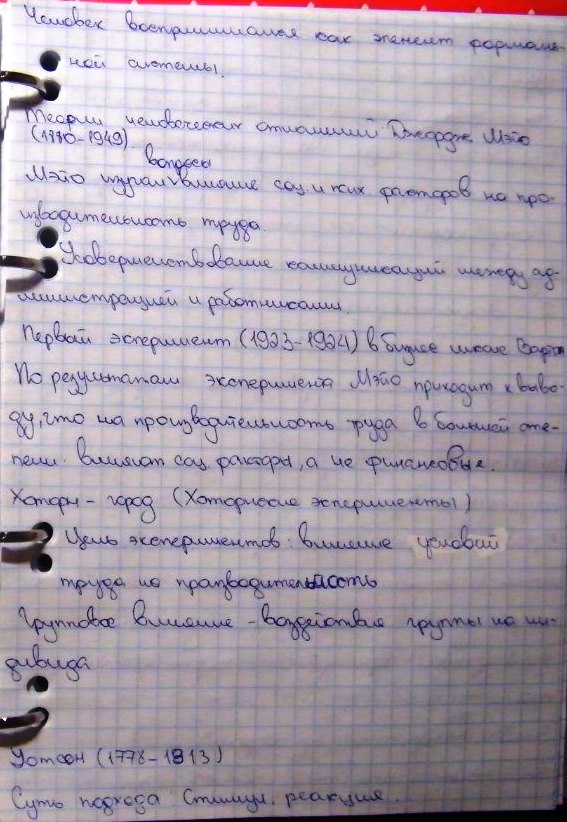 Человек воспринимался как элемент формаль-
ной системы.
Теории человеческих отношений Джордж Мэйо
(1880-1949)
вопросы
Мэйо изучал влияние соц. и псих факторов на про-
изводительность труда.
Усовершенствование коммуникаций между ад-
министрацией и работниками.
Первый эксперимент (1923-1924) в бизнес школе
По результатам эксперимена Мэйо приходит к выво-
ду, что на производительность труда в большей сте-
пени влияют соц. факторы, а не финансовые.
Хоторн - город (Хоторнские эсперименты)
Цель экспериментов: влияние условий
труда на производительность
Групповое влияние - воздействие группы на ин-
дивида
Уотсон (1778-1913)
Суть подхода Стимул. реакция.